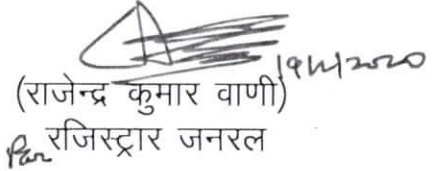 19/2/2020
(राजेन्द्र कुमार वाणी)
रजिस्ट्रार जनरल